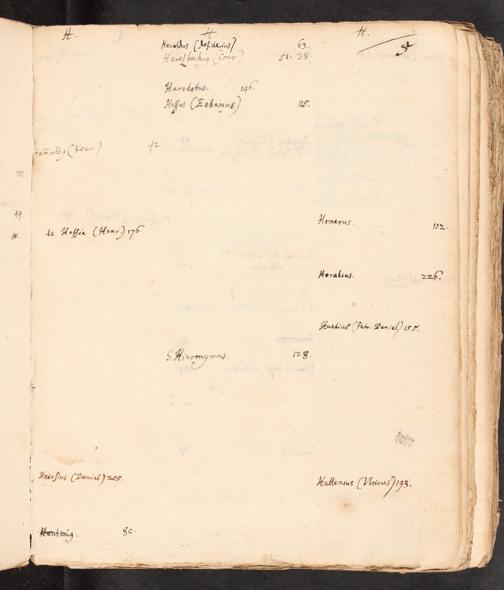 H. H. H.
Heraldus (Desiderius) 63.
Heresbachig (Conr.) 51. 38.
Herodotus. 146.
Hessus (Eobanus) 115.
Hammondg (Henr.) 42
de Hassia (Henr.) 176
Homerus. 102.
Horatius. 226.
Huetius (Petr. Daniel) 155.
S. Hieronymus. 128.
Heinsius (Daniel) 205.
Huttenus (Ulricus) 193.
80.